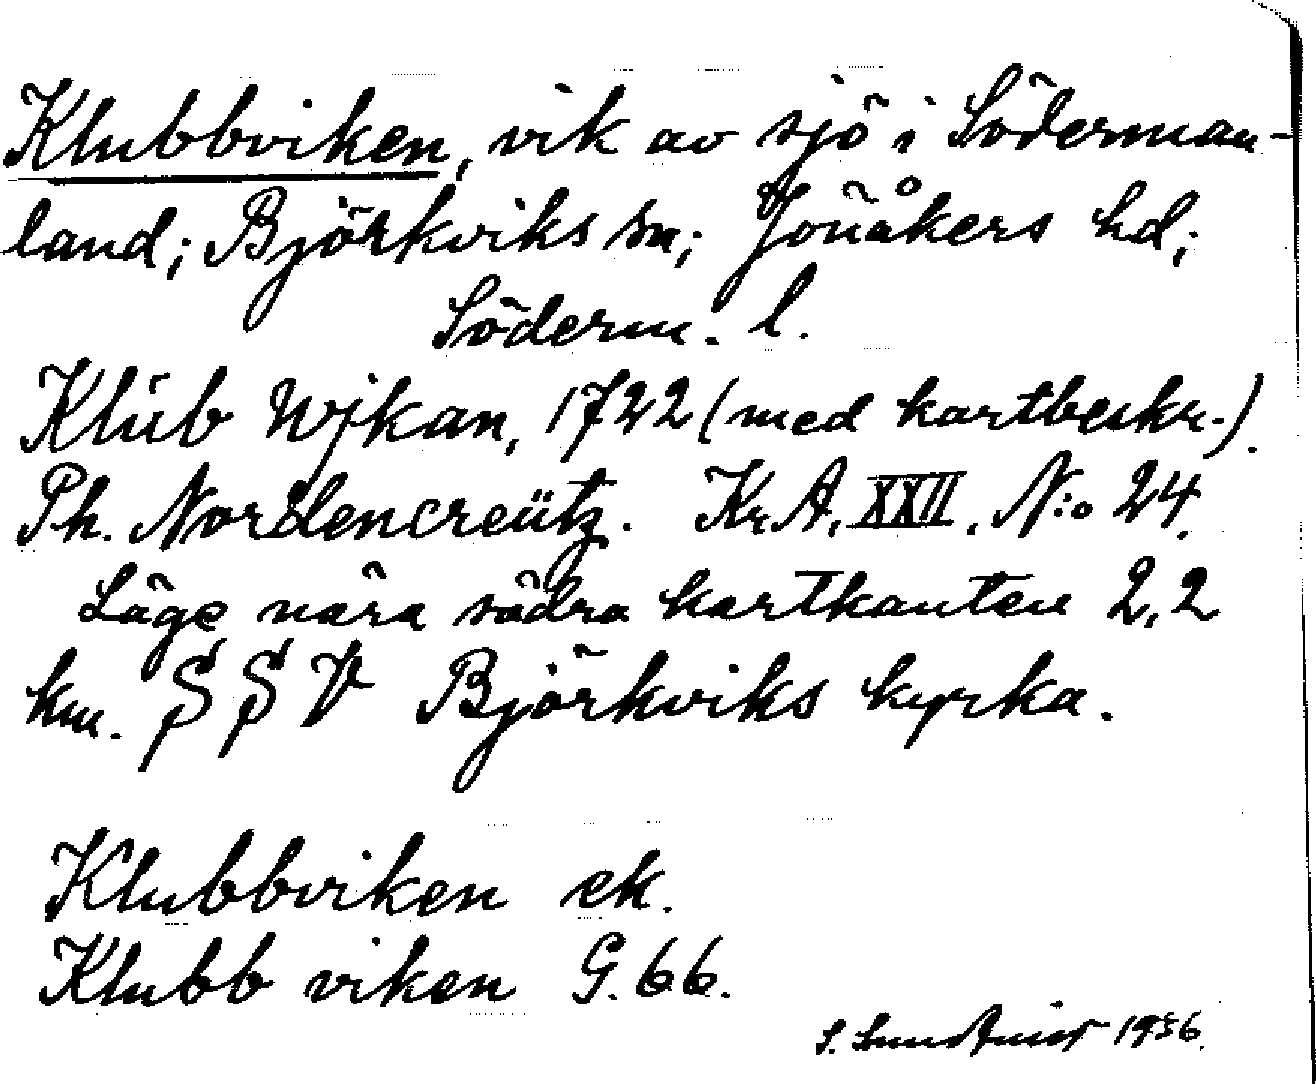 Klubbviken, vik av sjö i Söderman-
land; Björkviks sn; Jönåkers hd;
Söderm. l.
Klüb Wjkan, 1722 (med kartbeskr.).
Ph. Nordencreütz. Kr. A. XXII. N:o 24.
Läge nära södra kartkanten 2,2
km. S S V Björkviks kyrka.
Klubbviken ek.
Klubb viken G. 66.
S. 1936.